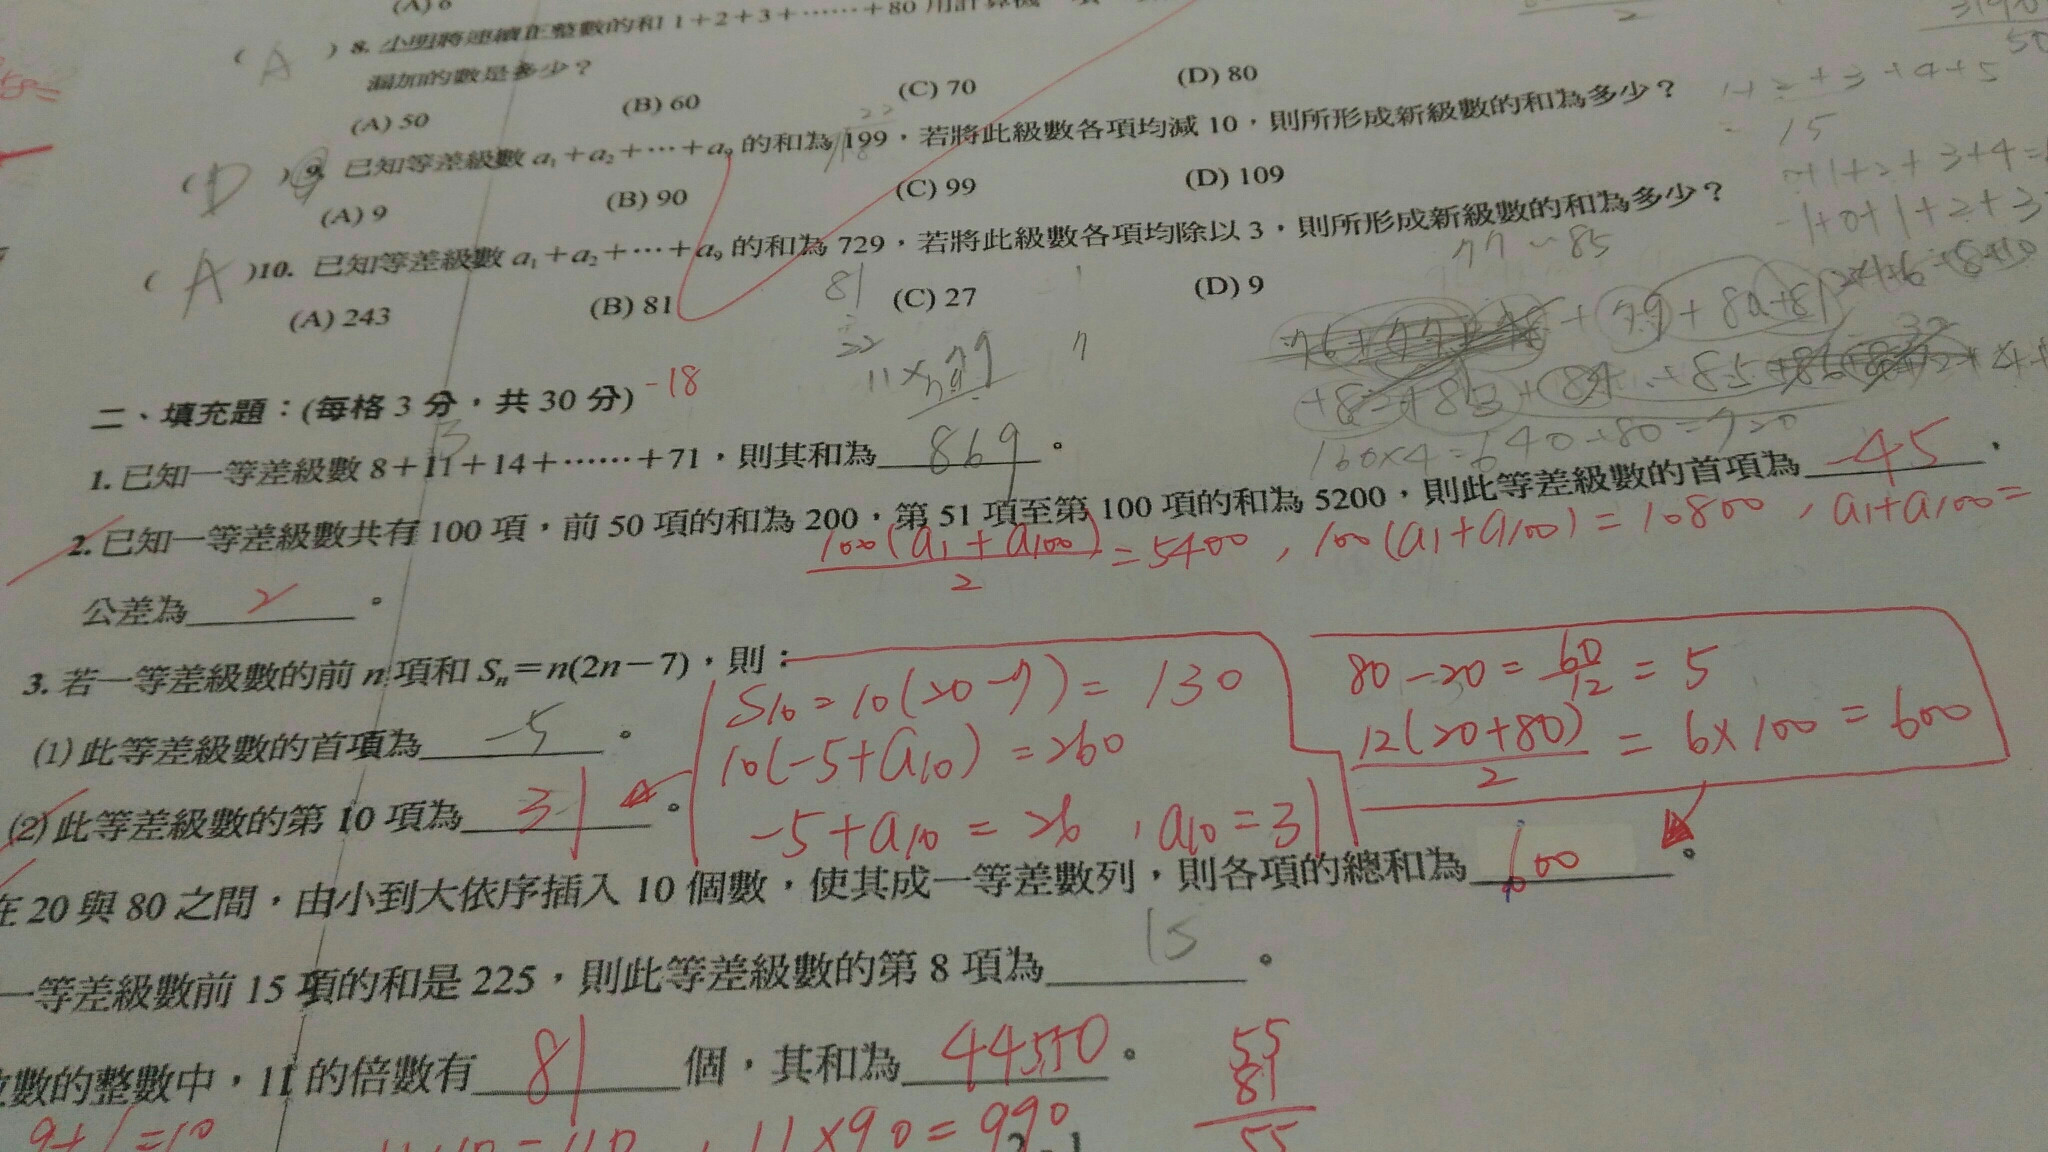 (A) 6
( A ) 8. 小明將連續正整數的和 1+2+3+……+80 用計算機
漏加的數是多少？
(A) 50 (B) 60 (C) 70 (D) 80
( D ) 9. 已知等差級數 a₁+a₂+⋯+a₉ 的和為 199，若將此級數各項均減 10，則所形成新級數的和為多少？
(A) 9 (B) 90 (C) 99 (D) 109
( A )10. 已知等差級數 a₁+a₂+⋯+a₉ 的和為 729，若將此級數各項均除以 3，則所形成新級數的和為多少？
(A) 243 (B) 81 (C) 27 (D) 9
1+2+3+4+5
15
-1+0+1+2+3
77~85
81
22
11×79
+79+80+81
160×4=640+80=720
二、填充題：(每格 3 分，共 30 分) -18
1. 已知一等差級數 8+11+14+……+71，則其和為 869 。
2. 已知一等差級數共有 100 項，前 50 項的和為 200，第 51 項至第 100 項的和為 5200，則此等差級數的首項為 -45 ，
100(a1+a100)/2 = 5400 , 100(a1+a100) = 10800 , a1+a100=
公差為 2 。
3. 若一等差級數的前 n 項和 Sₙ=n(2n-7)，則：
(1) 此等差級數的首項為 -5 。
(2) 此等差級數的第 10 項為 31 。
S10=10(20-7)=130
10(-5+a10)=260
-5+a10=26 , a10=31
80-20=60/12=5
12(20+80)/2=6×100=600
在 20 與 80 之間，由小到大依序插入 10 個數，使其成一等差數列，則各項的總和為 600 。
一等差級數前 15 項的和是 225，則此等差級數的第 8 項為 15 。
數的整數中，11 的倍數有 81 個，其和為 44550 。
55
81
55
9+1=10
11×10=110 , 11×90=990